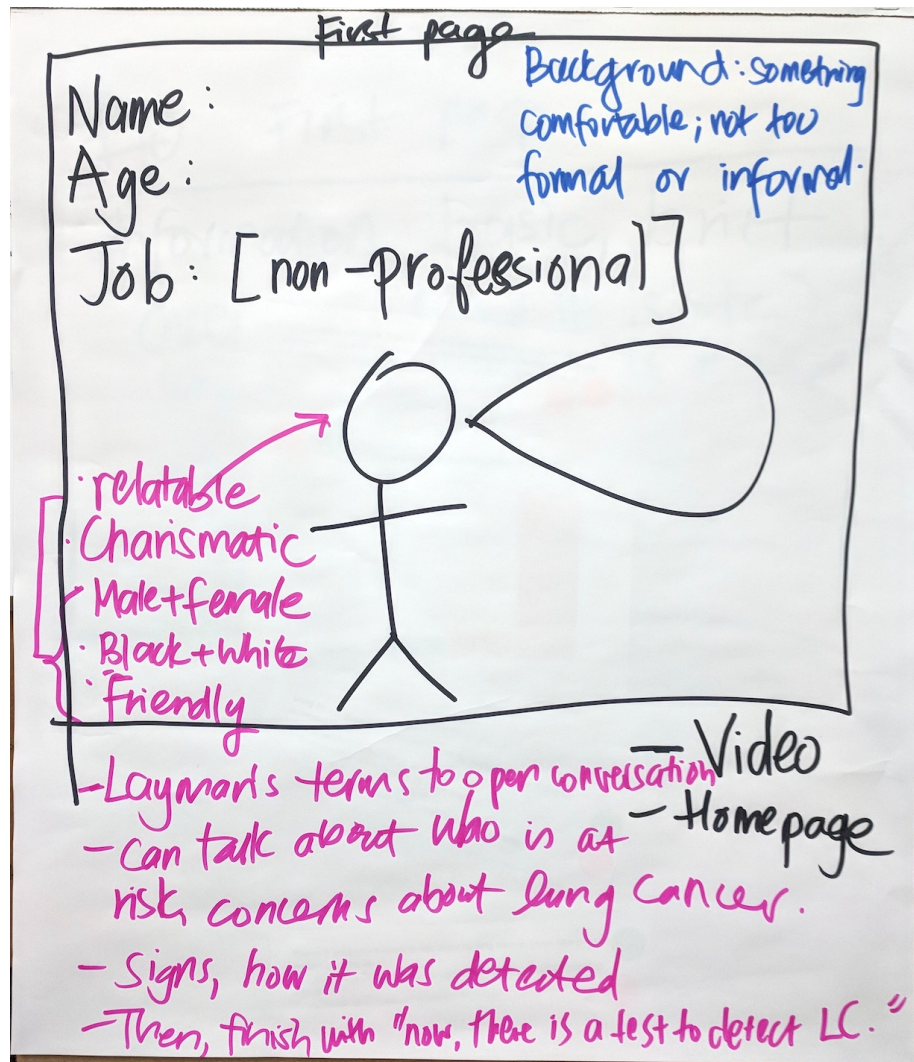 First page
Name:
Age:
Job: [non-professional]
Background: something
comfortable; not too
formal or informal.
· relatable
· Charismatic
· Male+female
· Black+white
· Friendly
- Video
- Homepage
- Layman's terms to open conversation
- can talk about who is at
risk, concerns about lung cancer.
- Signs, how it was detected
- Then, finish with "now, there is a test to detect LC."